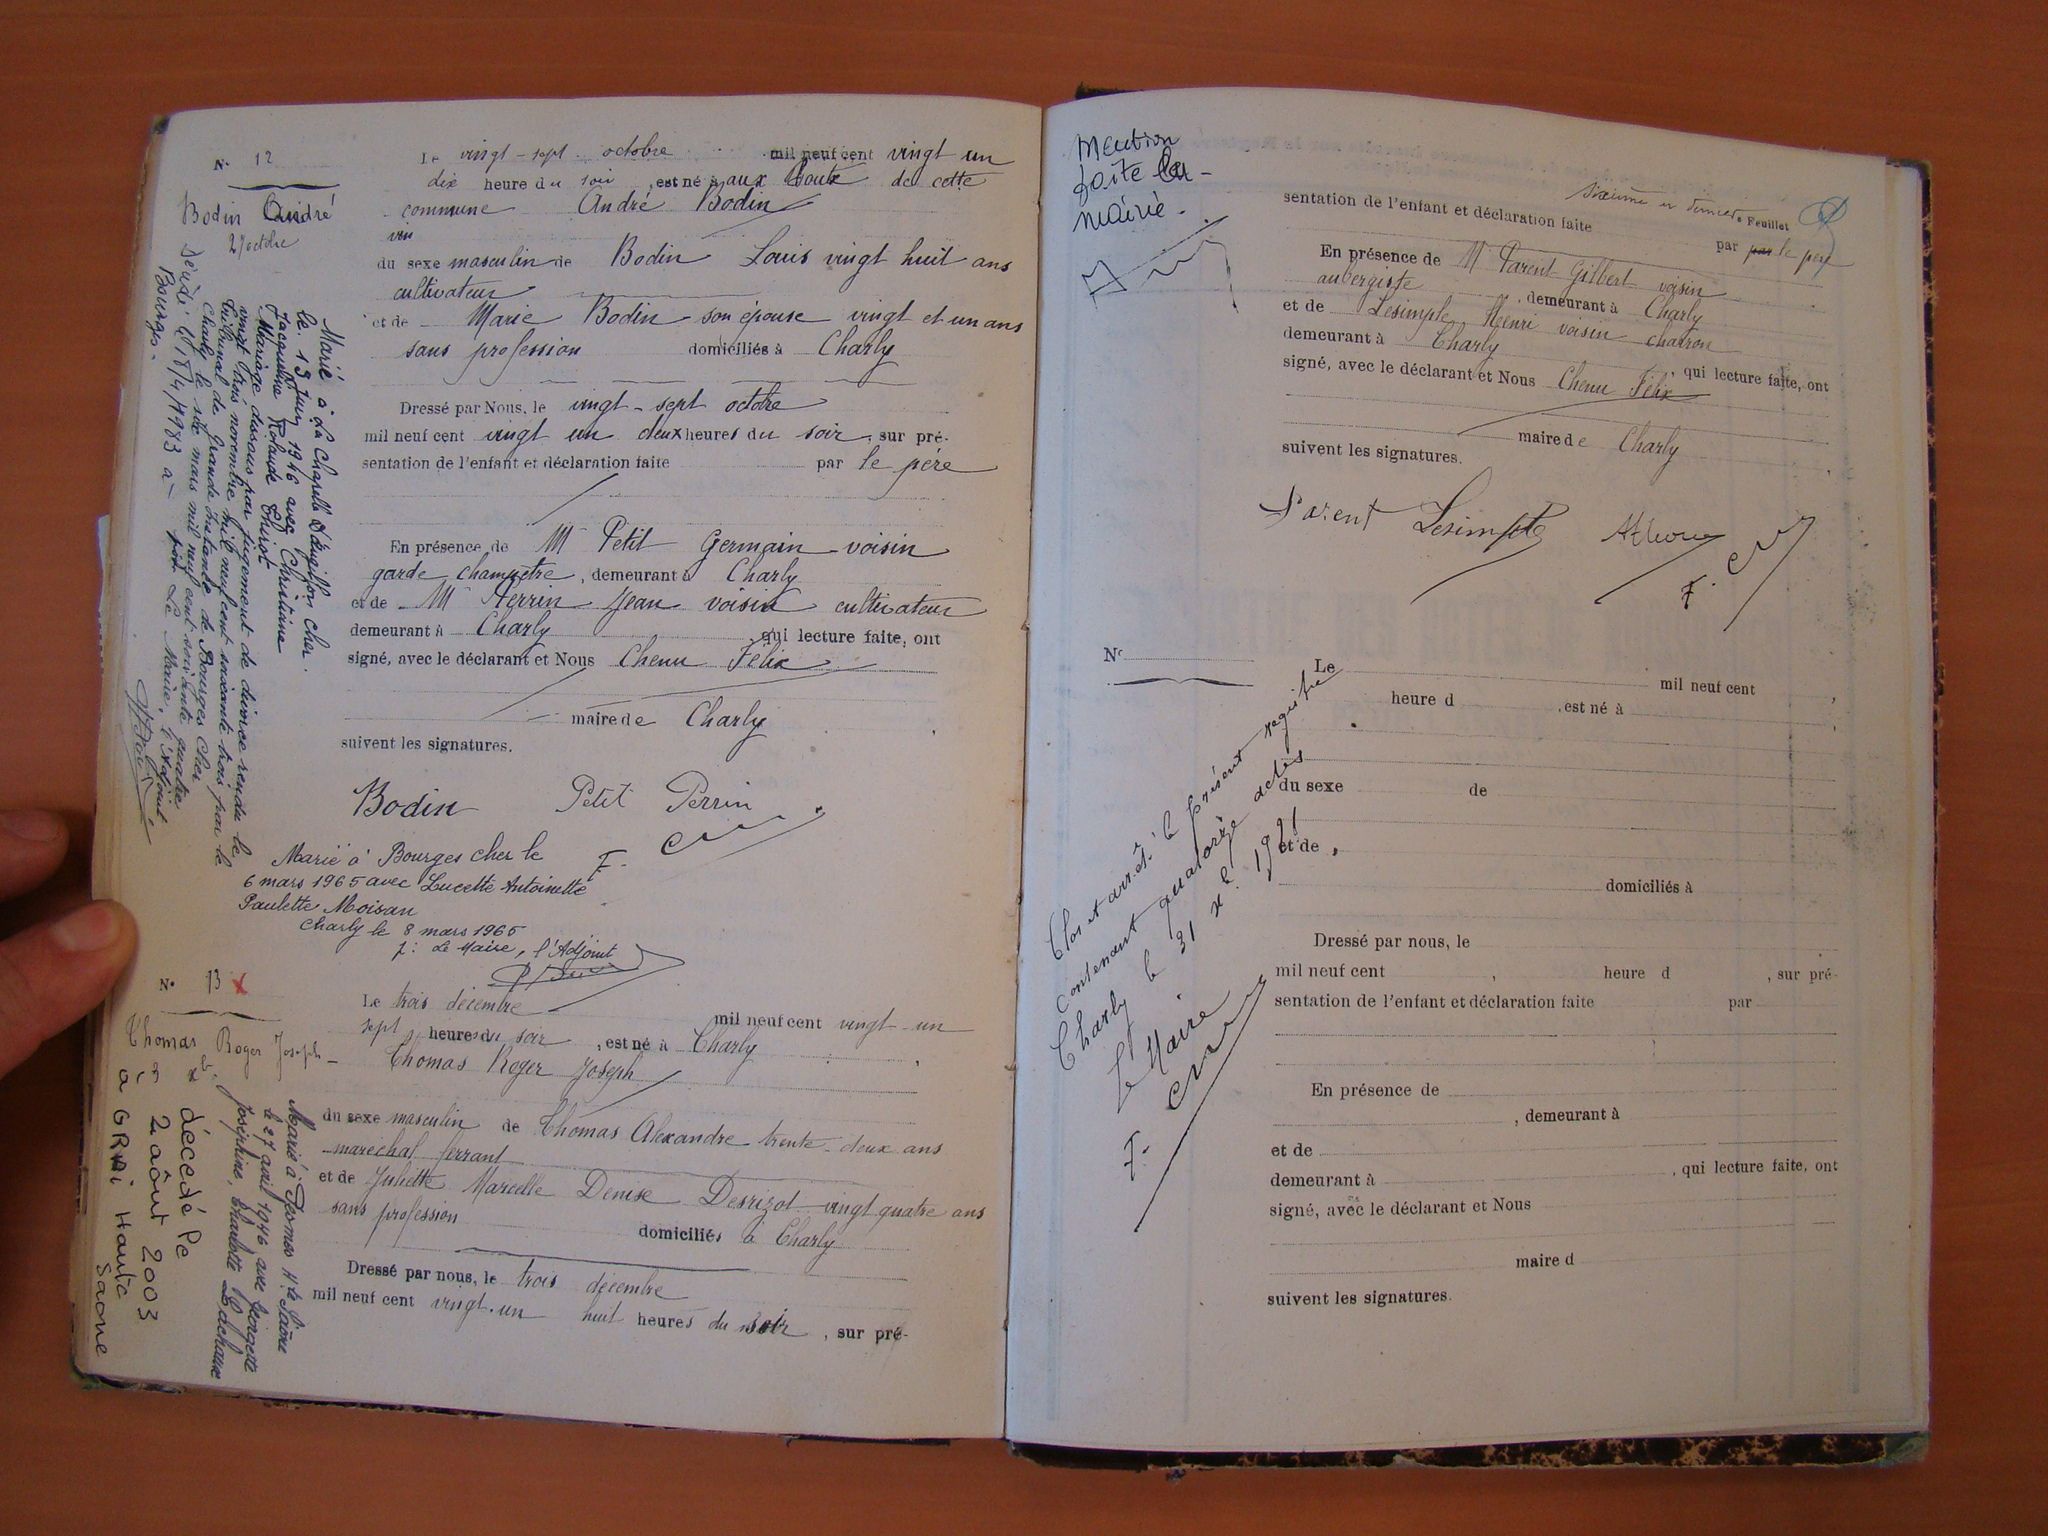 N° 12
Bodin André
27 octobre
Le vingt-sept octobre mil neuf cent vingt un
dix heure du soir, est né à aux de cette
commune André Bodin
du sexe masculin de Bodin Louis vingt huit ans
cultivateur
et de Marie Bodin son épouse vingt et un ans
sans profession domiciliés à Charly
Dressé par Nous, le vingt-sept octobre
mil neuf cent vingt un deux heures du soir, sur pré-
sentation de l'enfant et déclaration faite par le père
En présence de M Petit Germain voisin
garde champêtre, demeurant à Charly
et de M Perrin Jean voisin cultivateur
demeurant à Charly qui lecture faite, ont
signé, avec le déclarant et Nous Chenu Félix
maire de Charly
suivent les signatures.
Bodin Petit Perrin
F.
Marié à La Chapelle D'angillon cher.
le 13 Juin 1946 avec Christiane
Jacqueline Rolande Thirot
Mariage dissous par jugement de divorce rendu le
vingt trois novembre mil neuf cent soixante trois par le
tribunal de Grande Instance de Bourges Cher
Charly le six mars mil neuf cent soixante quatre
Le Maire, l'Adjoint
Bourges.
Marié à Bourges cher le
6 mars 1965 avec Lucette Antoinette
Paulette Moisan
Charly le 8 mars 1965
P: Le Maire, l'Adjoint
N° 13 x
Thomas Roger Joseph
3 Xbre
Le trois décembre mil neuf cent vingt-un
sept heures du soir, est né à Charly
Thomas Roger Joseph
du sexe masculin de Thomas Alexandre trente-deux ans
maréchal ferrant
et de Juliette Marcelle Denise Desrizot vingt quatre ans
sans profession domiciliés à Charly
Dressé par nous, le trois décembre
mil neuf cent vingt-un huit heures du soir, sur pré-
Marié à Pesmes Hte Saône
le 27 avril 1946 avec Georgette
Joséphine, Charlotte Lachaux
décédé le
2 août 2003
à GRAI Haute
Saone
mention
faite en
mairie.
sixième et dernier Feuillet
sentation de l'enfant et déclaration faite par par le père
En présence de M Parent Gilbert voisin
aubergiste, demeurant à Charly
et de Lesimple Henri voisin charron
demeurant à Charly, qui lecture faite, ont
signé, avec le déclarant et Nous Chenu Félix
maire de Charly
suivent les signatures.
Parent Lesimple AThomas
F.
N°
Le mil neuf cent
heure d, est né à
du sexe de
et de
domiciliés à
Dressé par nous, le
mil neuf cent, heure d, sur pré-
sentation de l'enfant et déclaration faite par
En présence de
, demeurant à
et de
demeurant à, qui lecture faite, ont
signé, avec le déclarant et Nous
maire d
suivent les signatures.
Clos et arrêté le présent registre
contenant quatorze actes
Charly le 31 Xe 1921
le Maire
F.